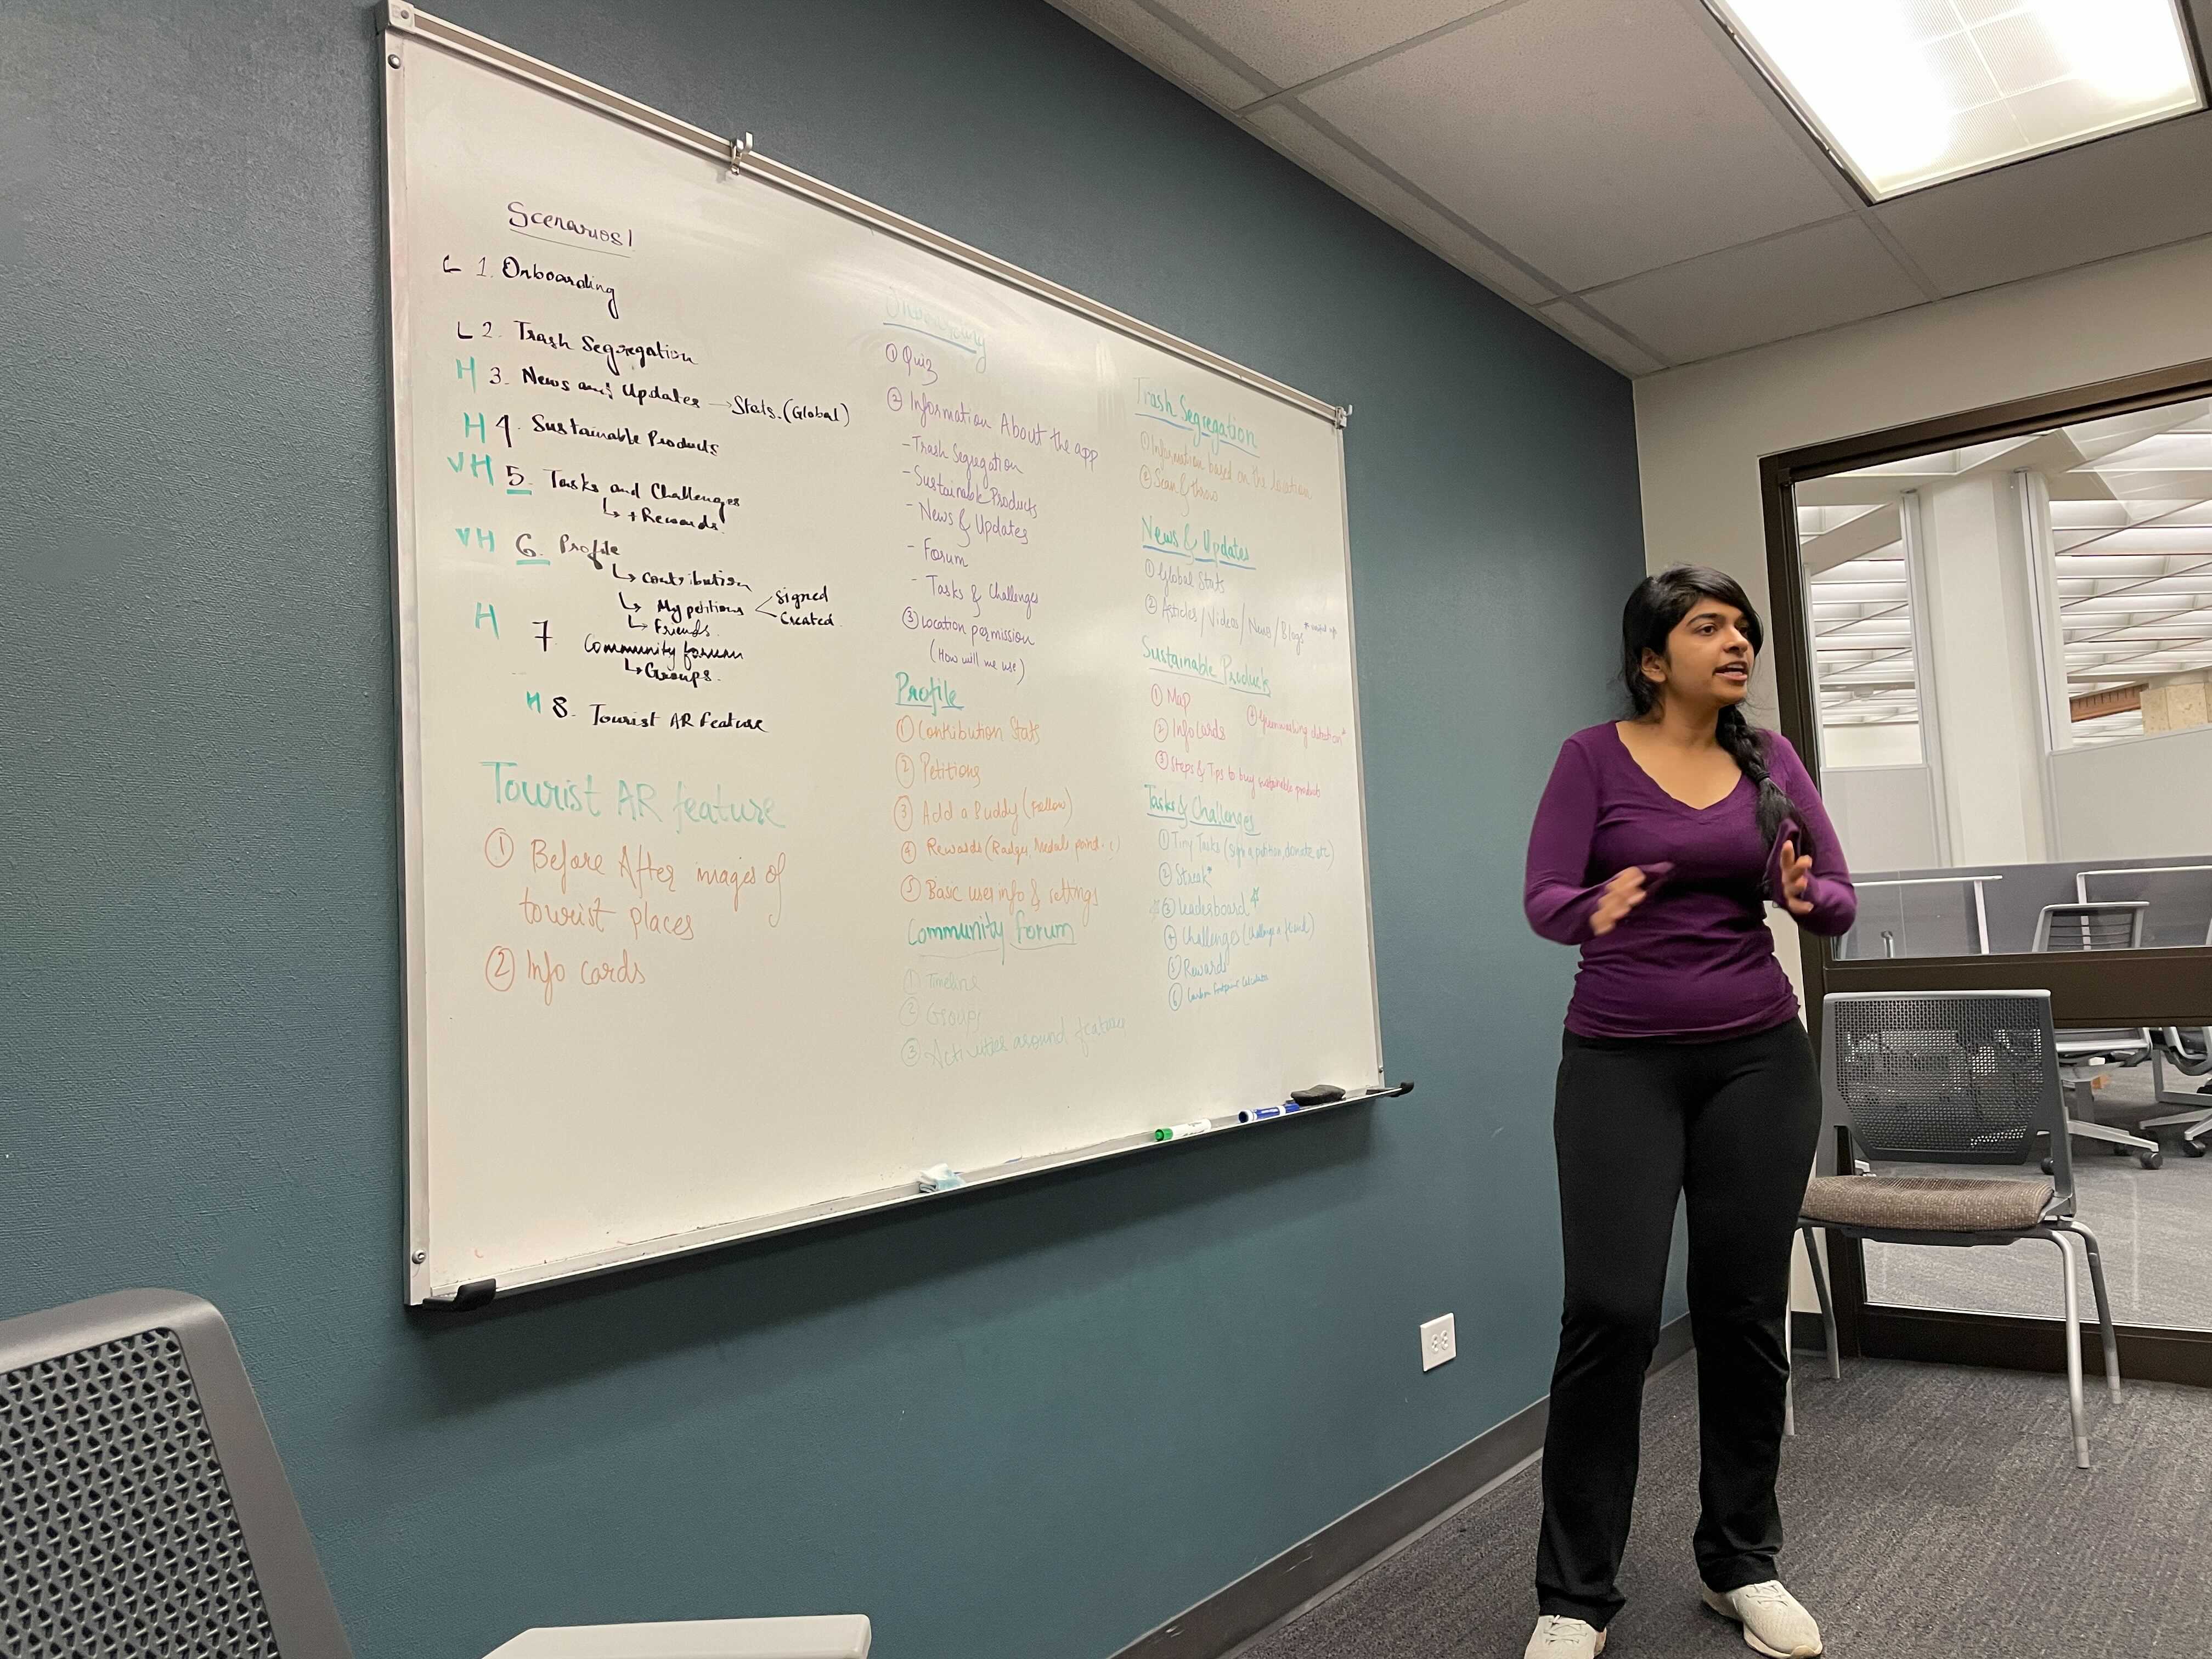 Scenarios
L 1. Onboarding
L 2. Trash Segregation
H 3. News and Updates → Stats. (Global)
H 4. Sustainable Products
VH 5. Tasks and Challenges
↳ + Rewards
VH 6. Profile
↳ Contribution
↳ My petitions < Signed
Created
↳ Friends
H 7. Community forum
↳ Groups
H 8. Tourist AR feature
Tourist AR feature
① Before After images of
tourist places
② Info cards
Onboarding
① Quiz
② Information About the app
- Trash Segregation
- Sustainable Products
- News & Updates
- Forum
- Tasks & Challenges
③ Location permission
(How will we use)
Profile
① Contribution Stats
② Petitions
③ Add a Buddy (Follow)
④ Rewards (Badges, Medals, point
⑤ Basic user info & settings
Community Forum
① Timeline
② Groups
③ Activities around feature
Trash Segregation
① Information based on the location
② Scan & throw
News & Updates
① Global Stats
② Articles / Videos / News / Blogs*
Sustainable Products
① Map
② Info Cards
④ Greenwashing detection*
③ Steps & Tips to buy sustainable products
Tasks & Challenges
① Tiny Tasks (Sign a petition, donate etc)
② Streak*
③ Leaderboard
④ Challenges (Challenge a friend)
⑤ Rewards
⑥ Carbon footprint Calculator